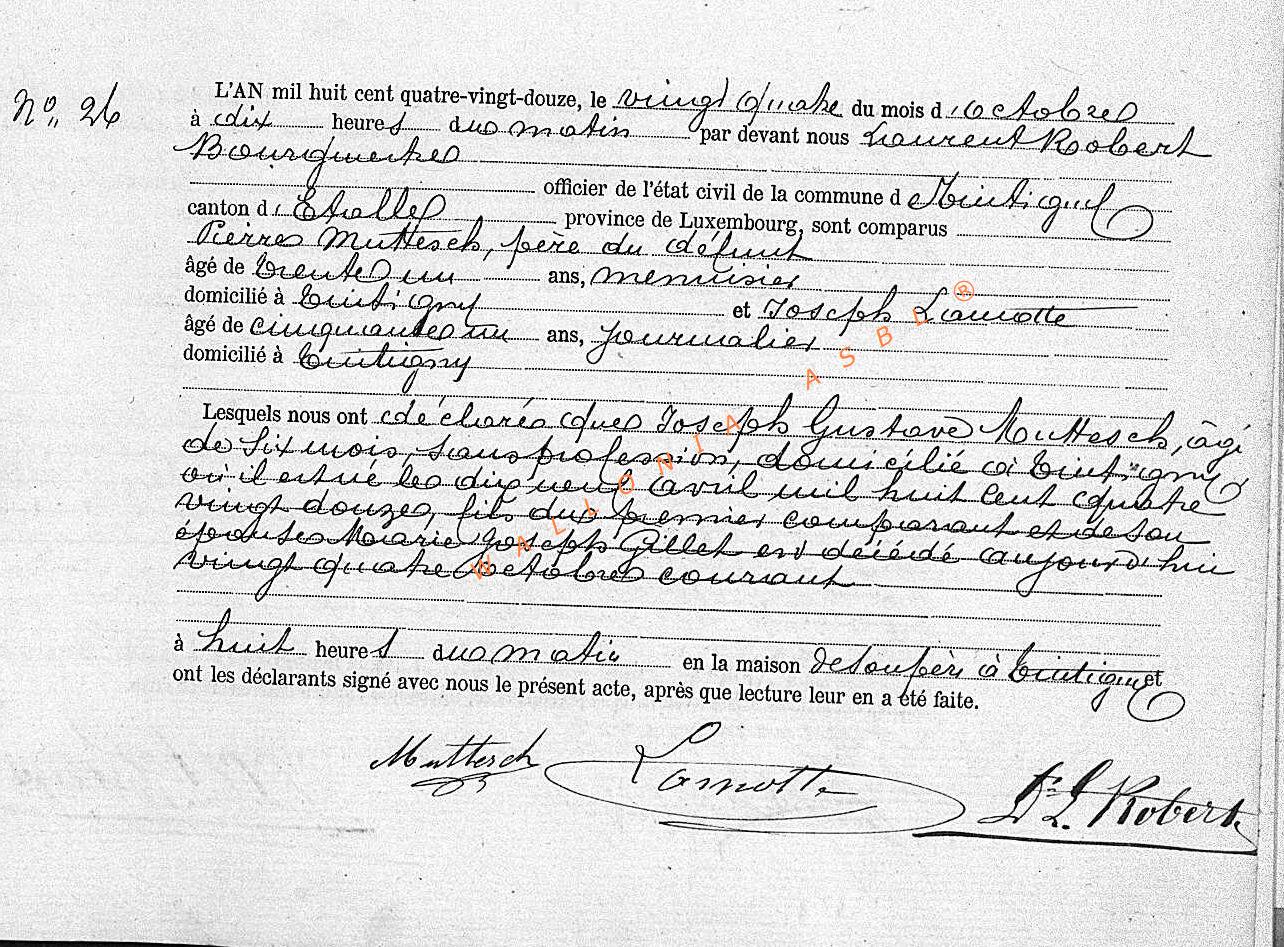 Nº 26
L'AN mil huit cent quatre-vingt-douze, le vingt quatre du mois d'octobre
à dix heures du matin par devant nous Laurent Robert
Bourgmestre
officier de l'état civil de la commune de Tintigny
canton d'Etalle province de Luxembourg, sont comparus
Pierre Muttesch, père du défunt
âgé de trente un ans, menuisier
domicilié à Tintigny et Joseph Lamotte
âgé de cinquante un ans, journalier
domicilié à Tintigny
Lesquels nous ont déclaré que Joseph Gustave Muttesch, âgé
de six mois, sans profession, domicilié à Tintigny
où il est né le dix neuf avril mil huit cent quatre
vingt douze, fils du premier comparant et de son
épouse Marie Joseph Gillet est décédé aujourd'hui
vingt quatre octobre courant
à huit heures du matin en la maison de son père à Tintigny et
ont les déclarants signé avec nous le présent acte, après que lecture leur en a été faite.
Muttesch Lamotte Dr L. Robert
WALLONIA ASBL ®